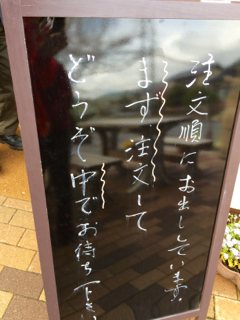 注文順にお出ししています。
まず注文して
どうぞ中でお待ち下さい